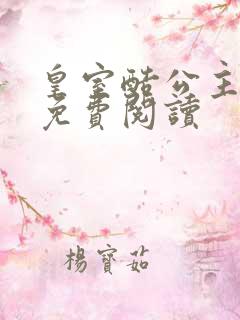 皇室酷公主
免費閱讀
楊寶茹